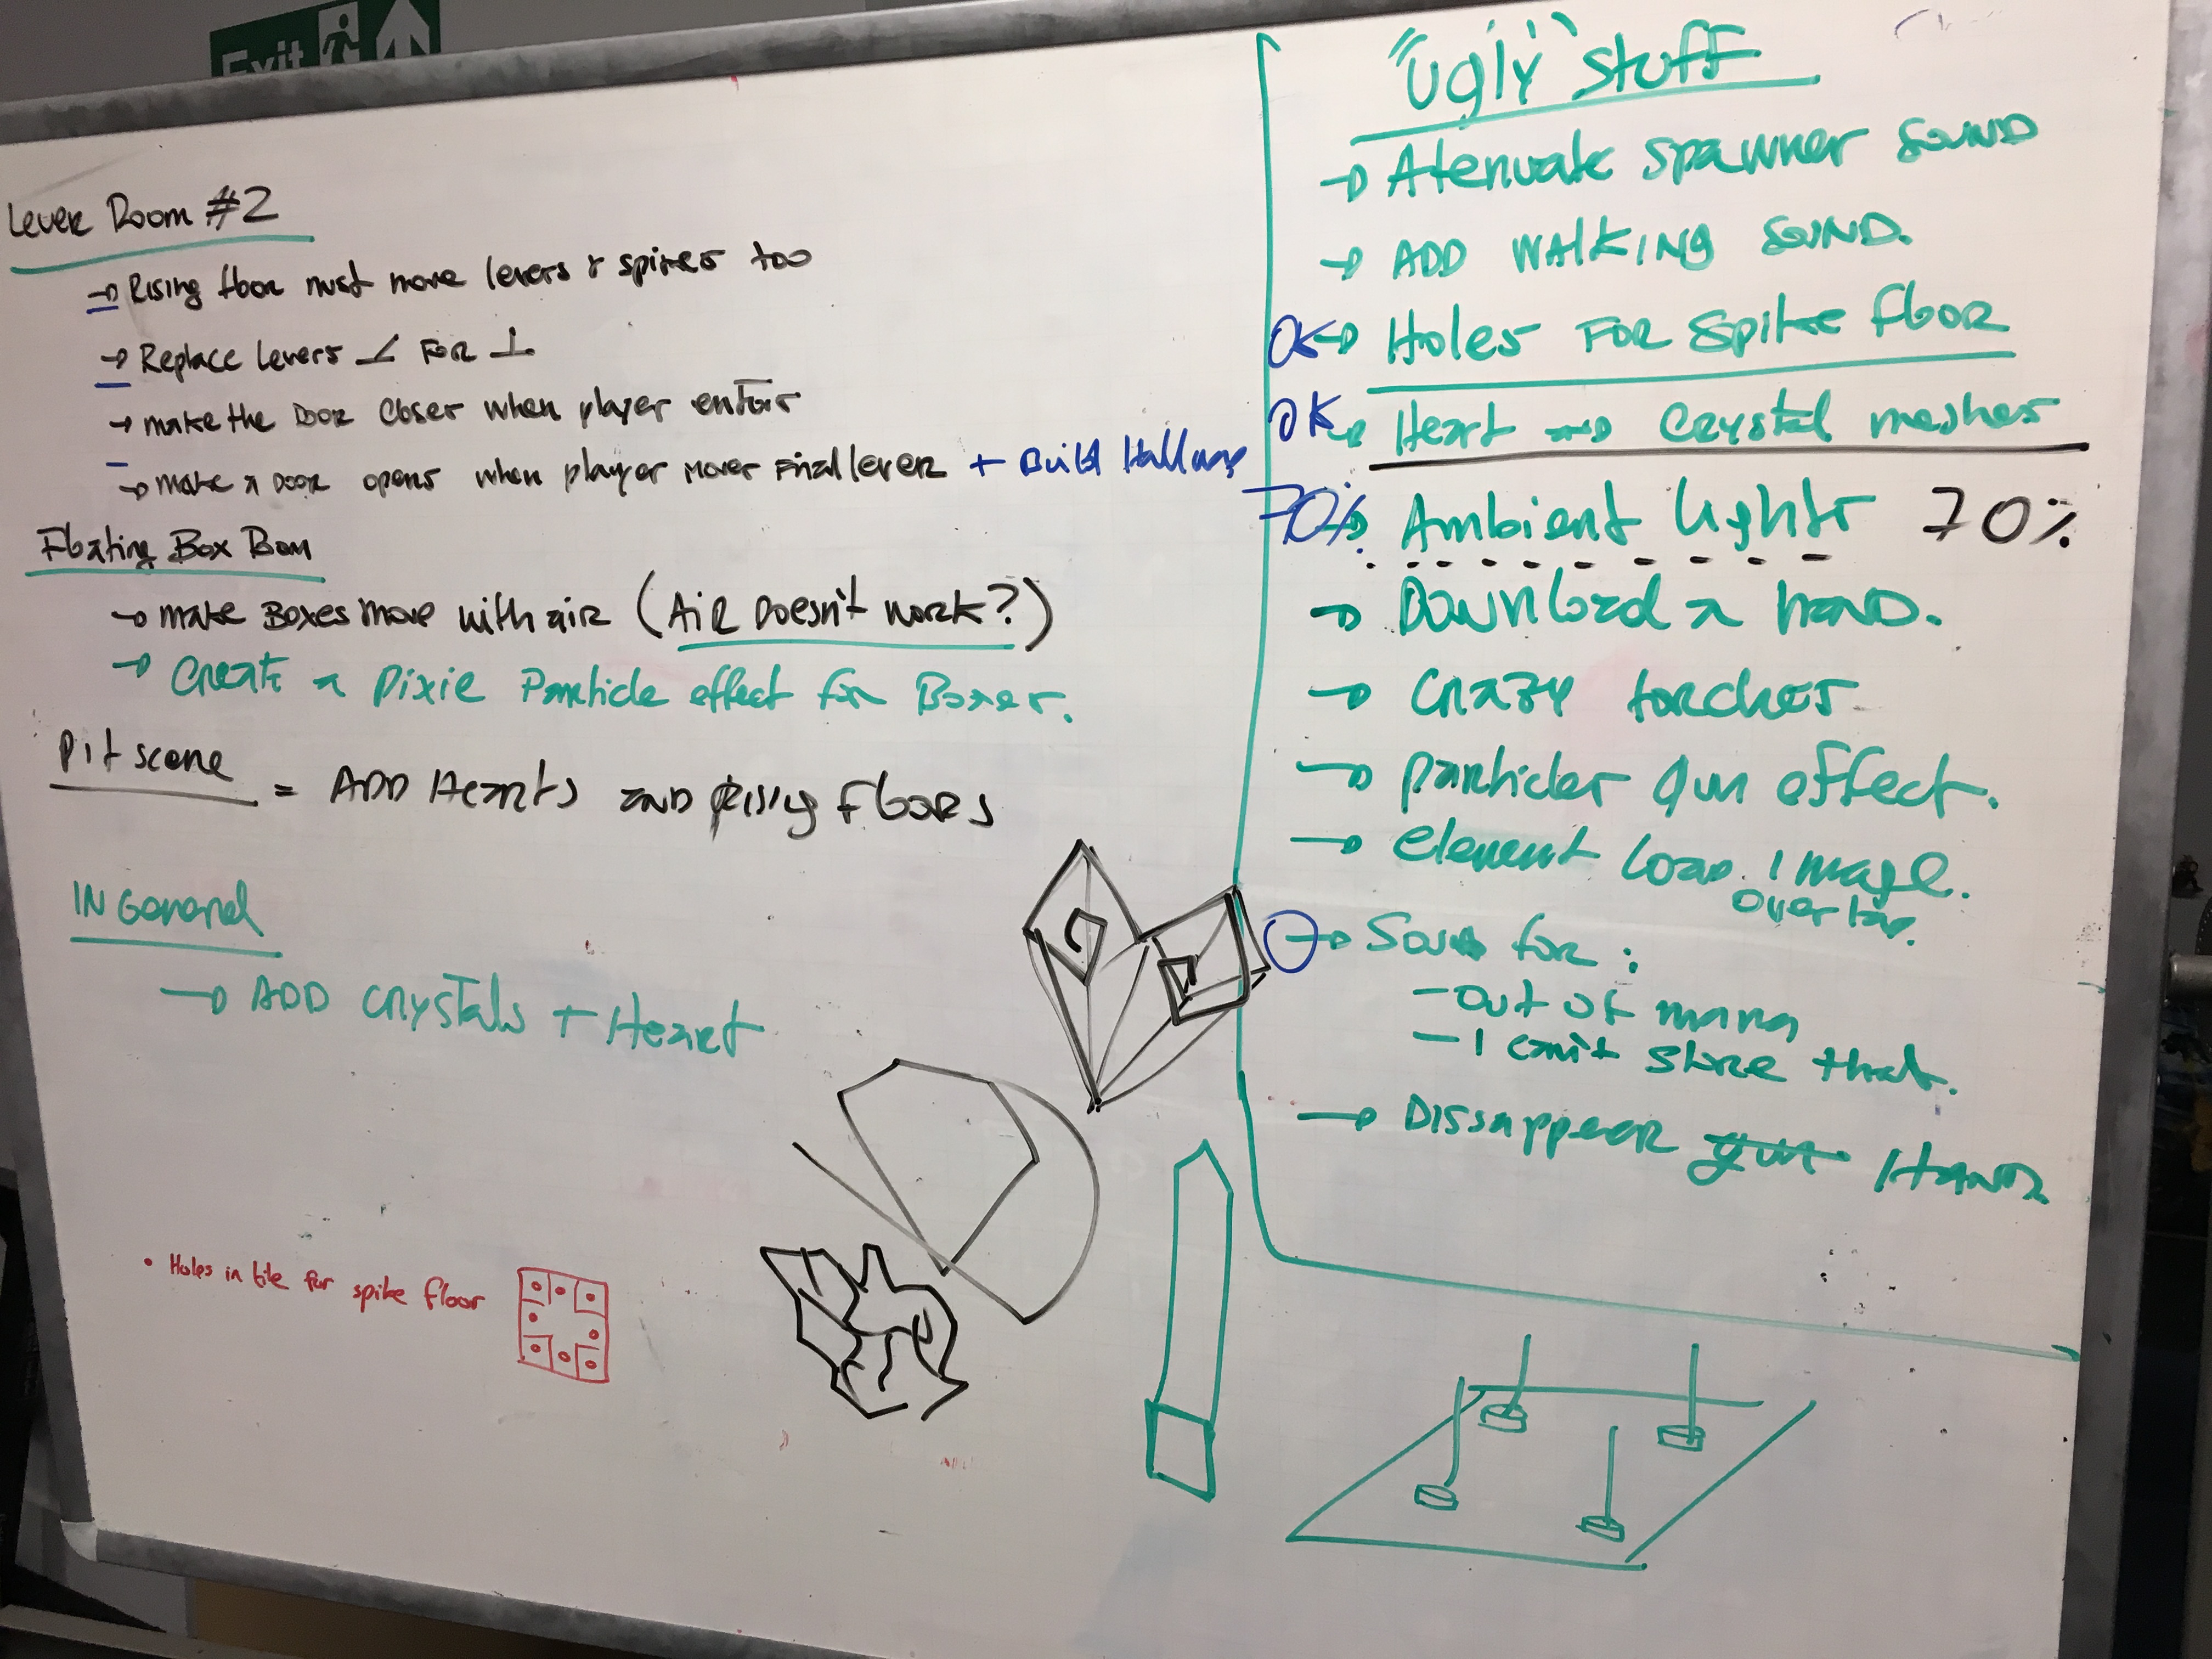 Exit
Lever Room #2
→ Rising floor must move levers & spikes too
→ Replace levers ∠ FOR ⊥
→ make the Door closer when player enter
→ make a Door opens when player moves Final lever + Build Hallway
Floating Box Room
→ make Boxes move with air (Air Doesn't work?)
→ Create a Pixie Particle effect for Boxes.
Pit scene = ADD Hearts and Rising floors
IN General
→ ADD crystals + Heart
• Holes in tile for spike floor
"Ugly" stuff
→ Atenuate spawner sound
→ ADD WALKING SOUND.
OK → Holes FOR spike floor
OK → Heart and Crystal meshes
70% → Ambient lights 70%
→ Download a hand.
→ Crazy torches
→ particles gun effect.
→ element load image
over time.
→ Sound for:
- out of mana
- I can't store that.
→ Dissappear gun HAND